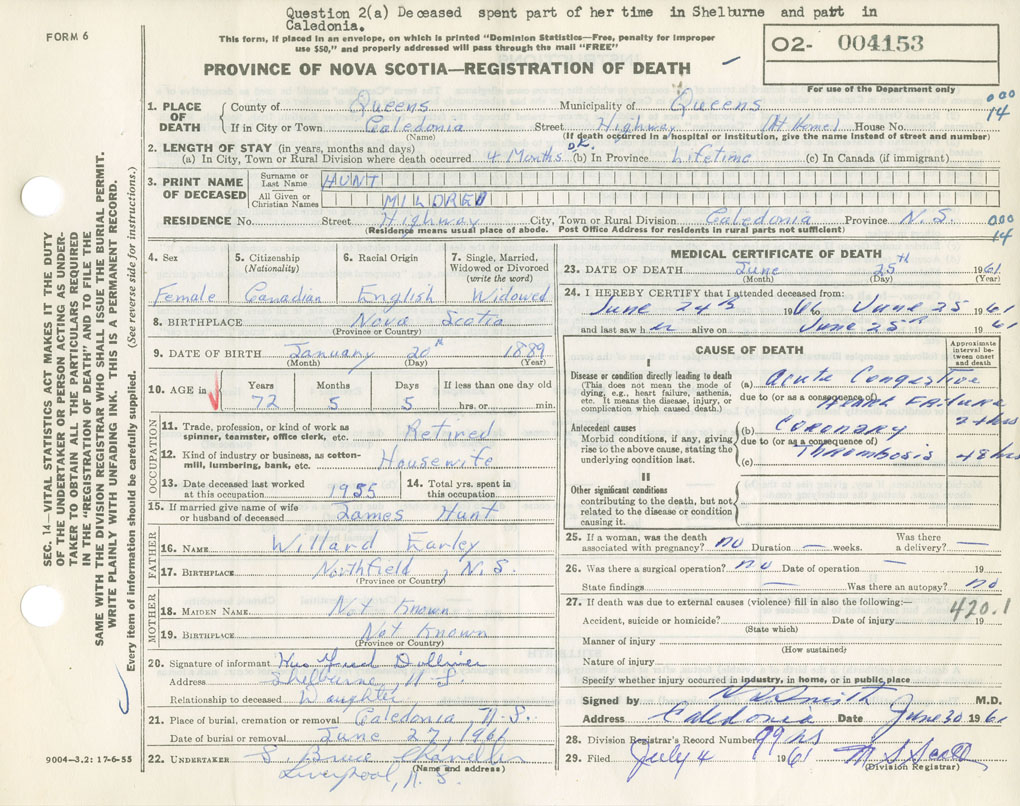 Question 2(a) Deceased spent part of her time in Shelburne and part in
Caledonia.
FORM 6
This form, if placed in an envelope, on which is printed "Dominion Statistics—Free, penalty for improper
use $50," and properly addressed will pass through the mail "FREE"
O2- 004153
For use of the Department only
PROVINCE OF NOVA SCOTIA—REGISTRATION OF DEATH
SEC. 14—VITAL STATISTICS ACT MAKES IT THE DUTY
OF THE UNDERTAKER OR PERSON ACTING AS UNDER-
TAKER TO OBTAIN ALL THE PARTICULARS REQUIRED
IN THE "REGISTRATION OF DEATH" AND TO FILE THE
SAME WITH THE DIVISION REGISTRAR WHO SHALL ISSUE THE BURIAL PERMIT.
WRITE PLAINLY WITH UNFADING INK. THIS IS A PERMANENT RECORD.
Every item of information should be carefully supplied. (See reverse side for instructions.)
1. PLACE OF DEATH County of Queens Municipality of Queens
000
14
If in City or Town Caledonia Street Highway (At Home) House No.
(Name) (If death occurred in a hospital or institution, give the name instead of street and number)
2. LENGTH OF STAY (in years, months and days)
(a) In City, Town or Rural Division where death occurred 4 Months (b) In Province Lifetime (c) In Canada (if immigrant)
3. PRINT NAME OF DECEASED
Surname or Last Name HUNT
All Given or Christian Names MILDRED
RESIDENCE No. Street Highway City, Town or Rural Division Caledonia Province N.S.
000
14
(Residence means usual place of abode. Post Office Address for residents in rural parts not sufficient)
4. Sex
Female
5. Citizenship
(Nationality)
Canadian
6. Racial Origin
English
7. Single, Married,
Widowed or Divorced
(write the word)
Widowed
8. BIRTHPLACE Nova Scotia
(Province or Country)
9. DATE OF BIRTH January 20th 1889
(Month) (Day) (Year)
10. AGE in Years Months Days If less than one day old
72 5 5 hrs. or min.
OCCUPATION
11. Trade, profession, or kind of work as
spinner, teamster, office clerk, etc. Retired
12. Kind of industry or business, as cotton-
mill, lumbering, bank, etc. Housewife
13. Date deceased last worked
at this occupation 1955
14. Total yrs. spent in
this occupation
15. If married give name of wife
or husband of deceased James Hunt
FATHER
16. NAME Willard Farley
17. BIRTHPLACE Northfield, N.S.
(Province or Country)
MOTHER
18. MAIDEN NAME Not Known
19. BIRTHPLACE Not Known
(Province or Country)
20. Signature of informant Mrs Fred Dolliver
Address Shelburne, N.S.
Relationship to deceased Daughter
21. Place of burial, cremation or removal Caledonia, N.S.
Date of burial or removal June 27, 1961
22. UNDERTAKER S. Bruce
Liverpool, N.S.
(Name and address)
9004—3.2: 17-6-55
MEDICAL CERTIFICATE OF DEATH
23. DATE OF DEATH June 25th 1961
(Month) (Day) (Year)
24. I HEREBY CERTIFY that I attended deceased from:
June 24th 61 to June 25 1961
and last saw her alive on June 25th 1961
CAUSE OF DEATH
Approximate
interval be-
tween onset
and death
I
Disease or condition directly leading to death
(This does not mean the mode of
dying, e.g., heart failure, asthenia,
etc. It means the disease, injury, or
complication which caused death.)
(a) Acute Congestive
due to (or as a consequence of)
Heart Failure 24hrs
Antecedent causes
Morbid conditions, if any, giving
rise to the above cause, stating the
underlying condition last.
(b) Coronary
due to (or as a consequence of)
Thrombosis 48hrs
(c)
II
Other significant conditions
contributing to the death, but not
related to the disease or condition
causing it.
25. If a woman, was the death
associated with pregnancy? no Duration — weeks. Was there
a delivery? —
26. Was there a surgical operation? no Date of operation — 19
State findings — Was there an autopsy? no
27. If death was due to external causes (violence) fill in also the following:— 420.1
Accident, suicide or homicide? Date of injury 19
(State which)
Manner of injury
(How sustained)
Nature of injury
Specify whether injury occurred in industry, in home, or in public place
Signed by Smith M.D.
Address Caledonia Date June 30 1961
28. Division Registrar's Record Number
29. Filed July 4 1961
(Division Registrar)